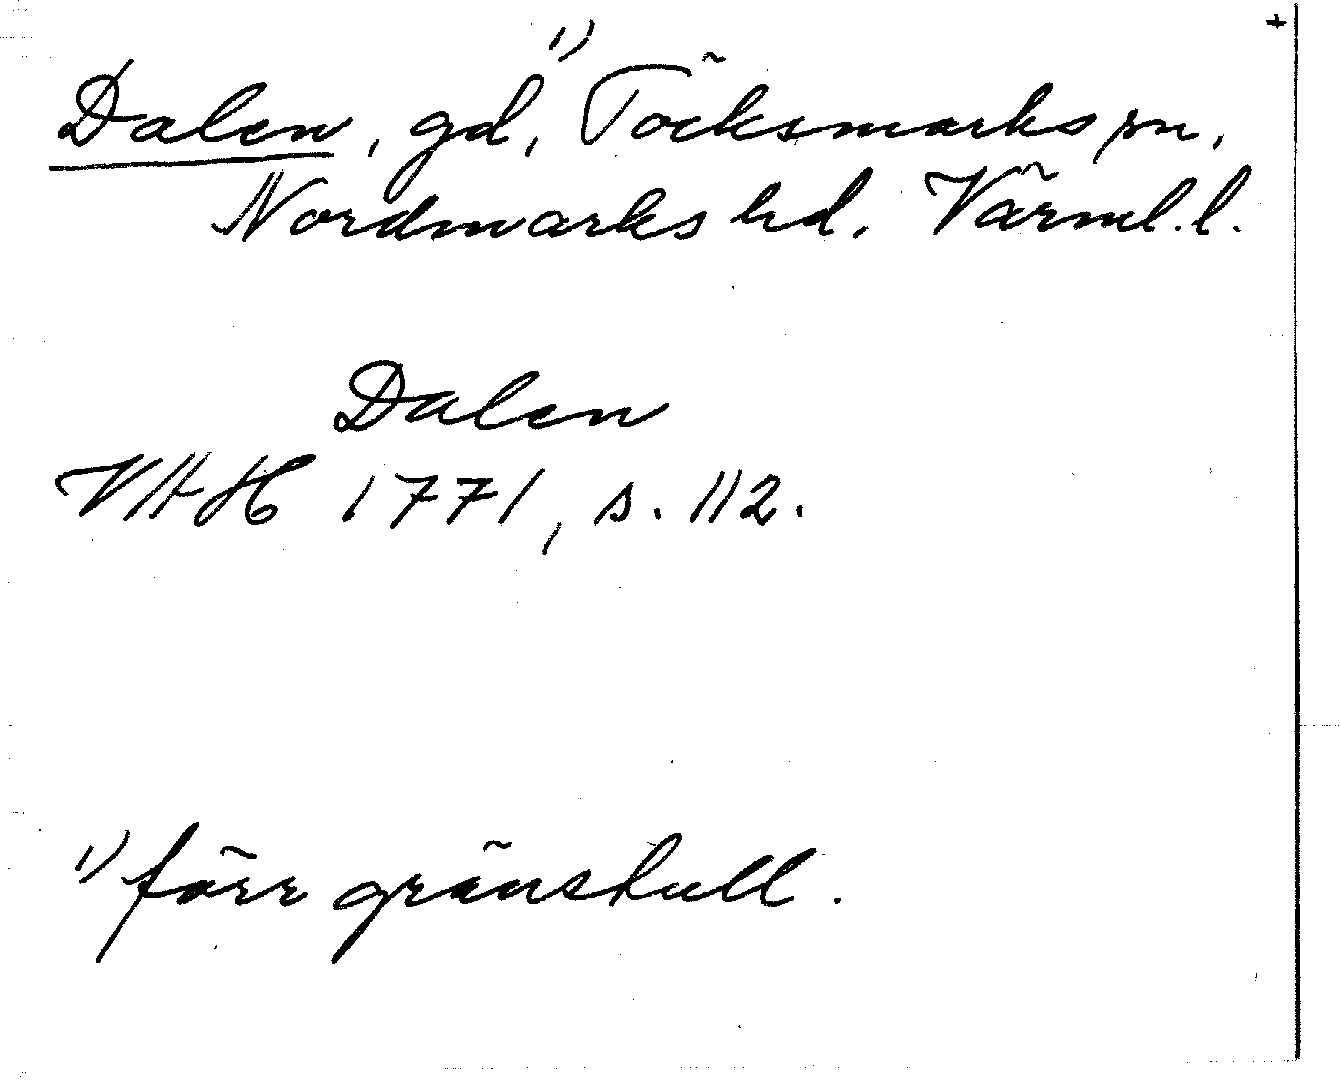 Dalen, gd,¹⁾ Töcksmarks sn,
Nordmarks hd. Värml. l.
Dalen
VHH 1771, s. 112.
¹⁾ förr gränstull.